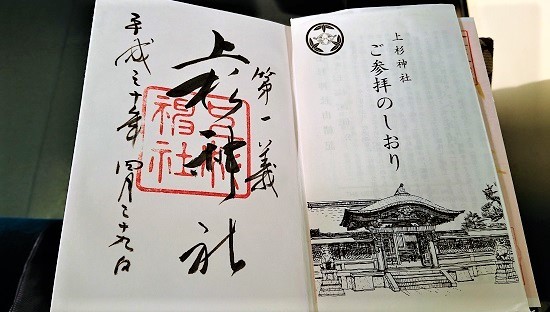 上杉神社
ご参拝のしおり
第一義
上杉神社
平成三十年四月二十九日